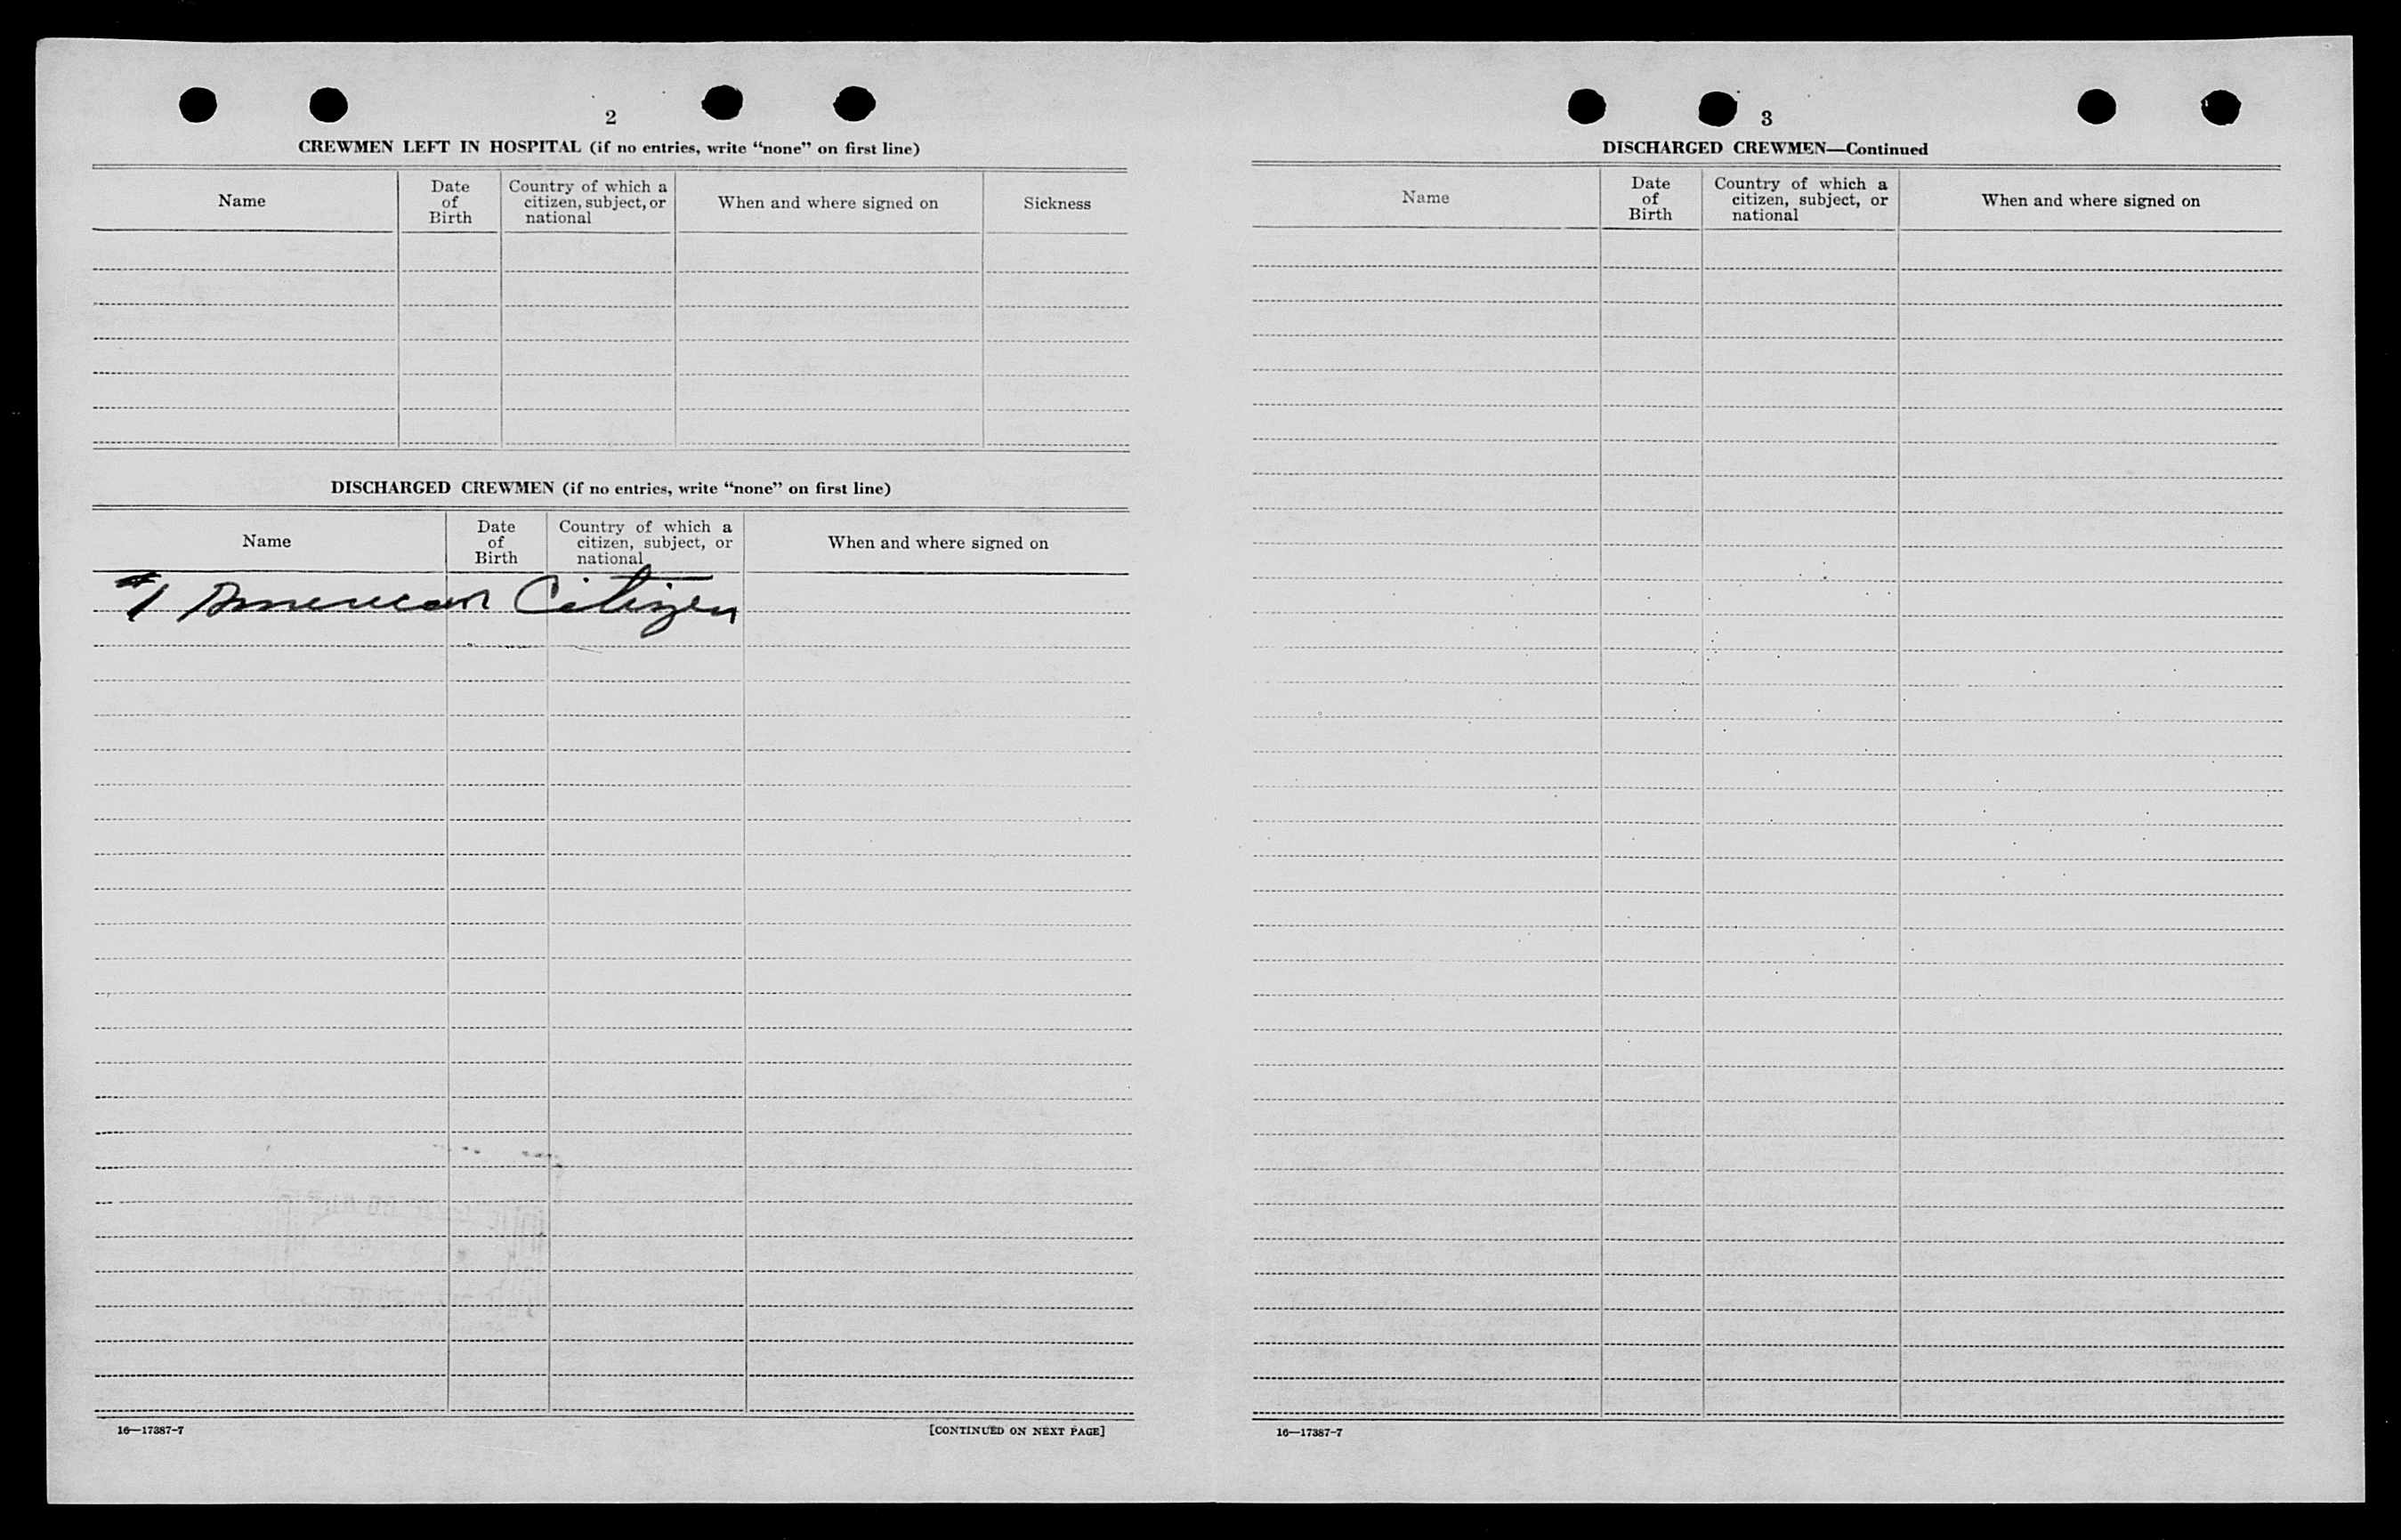 2
CREWMEN LEFT IN HOSPITAL (if no entries, write “none” on first line)
Name
Date
of
Birth
Country of which a
citizen, subject, or
national
When and where signed on
Sickness
DISCHARGED CREWMEN (if no entries, write “none” on first line)
Name
Date
of
Birth
Country of which a
citizen, subject, or
national
When and where signed on
#1 American Citizen
16—17387-7
[CONTINUED ON NEXT PAGE]
3
DISCHARGED CREWMEN—Continued
Name
Date
of
Birth
Country of which a
citizen, subject, or
national
When and where signed on
16—17387-7